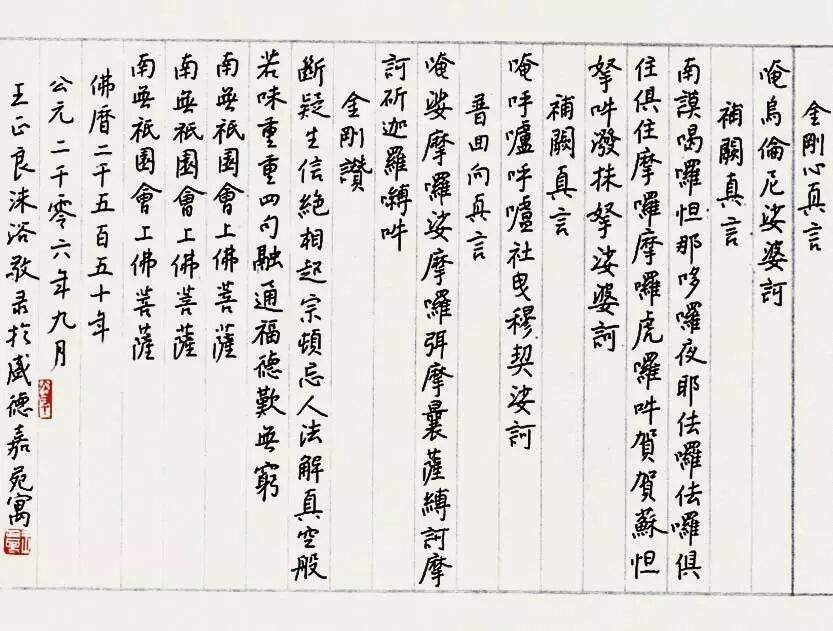 金剛心真言
唵烏倫尼娑婆訶
補闕真言
南謨喝囉怛那哆囉夜耶佉囉佉囉俱
住俱住摩囉摩囉虎囉吽賀賀蘇怛
拏吽潑抹拏娑婆訶
補闕真言
唵呼嚧呼嚧社曳穆契娑訶
普回向真言
唵娑摩囉娑摩囉弭摩曩薩縛訶摩
訶斫迦羅嚩吽
金剛讚
斷疑生信絕相起宗頓忘人法解真空般
若味重重四句融通福德歎無窮
南無祇園會上佛菩薩
南無祇園會上佛菩薩
南無祇園會上佛菩薩
佛曆二千五百五十年
公元二千零六年九月
王正良沐浴敬录於盛德嘉苑寓